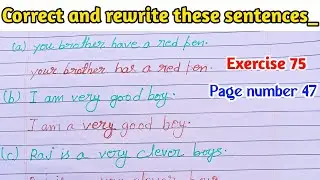 Correct and rewrite these sentences_
(a) you brother have a red pen.
your brother has a red pen.
Exercise 75
(b) I am very good boy.
Page number 47
I am a very good boy.
(c) Raj is a very clever boys.